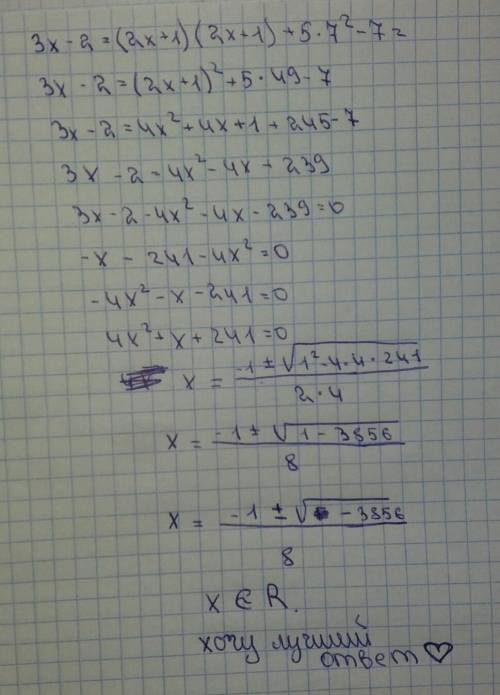 3x - 2 = (2x+1)(2x+1) + 5 · 7² - 7 =
3x - 2 = (2x+1)² + 5 · 49 - 7
3x - 2 = 4x² + 4x + 1 + 245 - 7
3x - 2 - 4x² - 4x - 239
3x - 2 - 4x² - 4x - 239 = 0
-x - 241 - 4x² = 0
-4x² - x - 241 = 0
4x² + x + 241 = 0
x = (-1 ± √(1² - 4 · 4 · 241)) / (2 · 4)
x = (-1 ± √(1 - 3856)) / 8
x = (-1 ± √(- 3856)) / 8
x ∈ R.
хочу лучший
ответ ♡